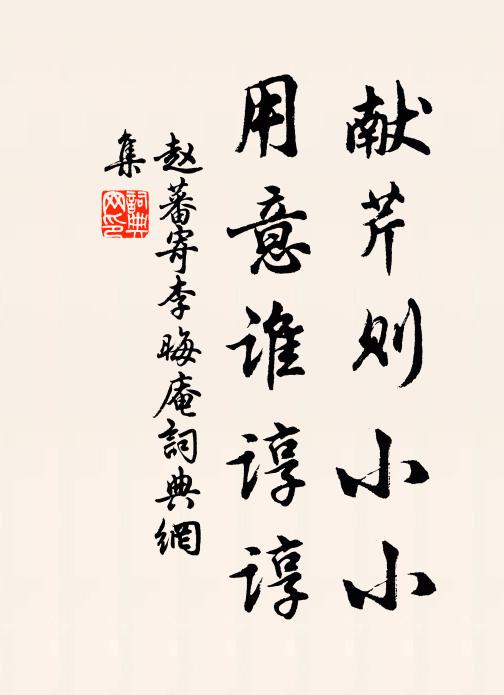 献芹则小小
用意谁谆谆
赵蕃寄李晦庵詞典網
集
詞典
网印